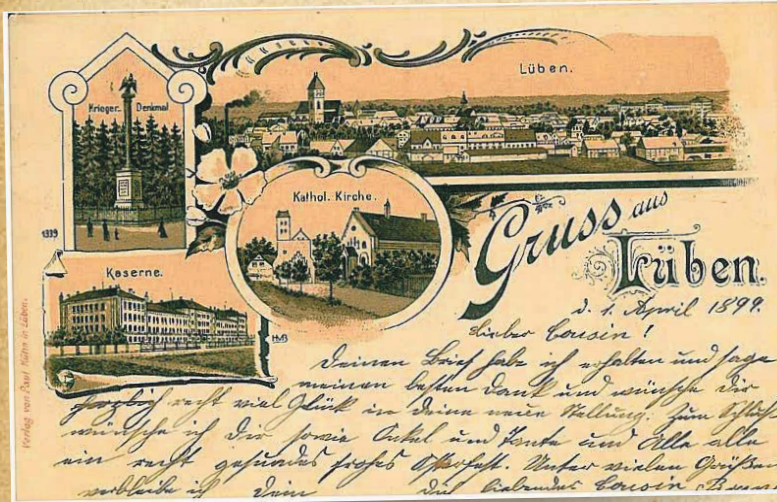 Lüben.
Krieger. Denkmal
Kathol. Kirche.
1339
Kaserne.
HvB
Gruss aus
Lüben.
Verlag von Paul Kühn in Lüben.
d. 1. April 1899.
Lieber Cousin!
Deinen Brief habe ich erhalten und sage
meinen besten Dank und wünsche Dir
herzlich recht viel Glück in Deine neue Stellung. Zum Schluß
wünsche ich Dir sowie Onkel und Tante und Alle alle
ein recht gesundes frohes Osterfest. Unter vielen Grüßen
verbleibe ich Dein Dich liebender Cousin